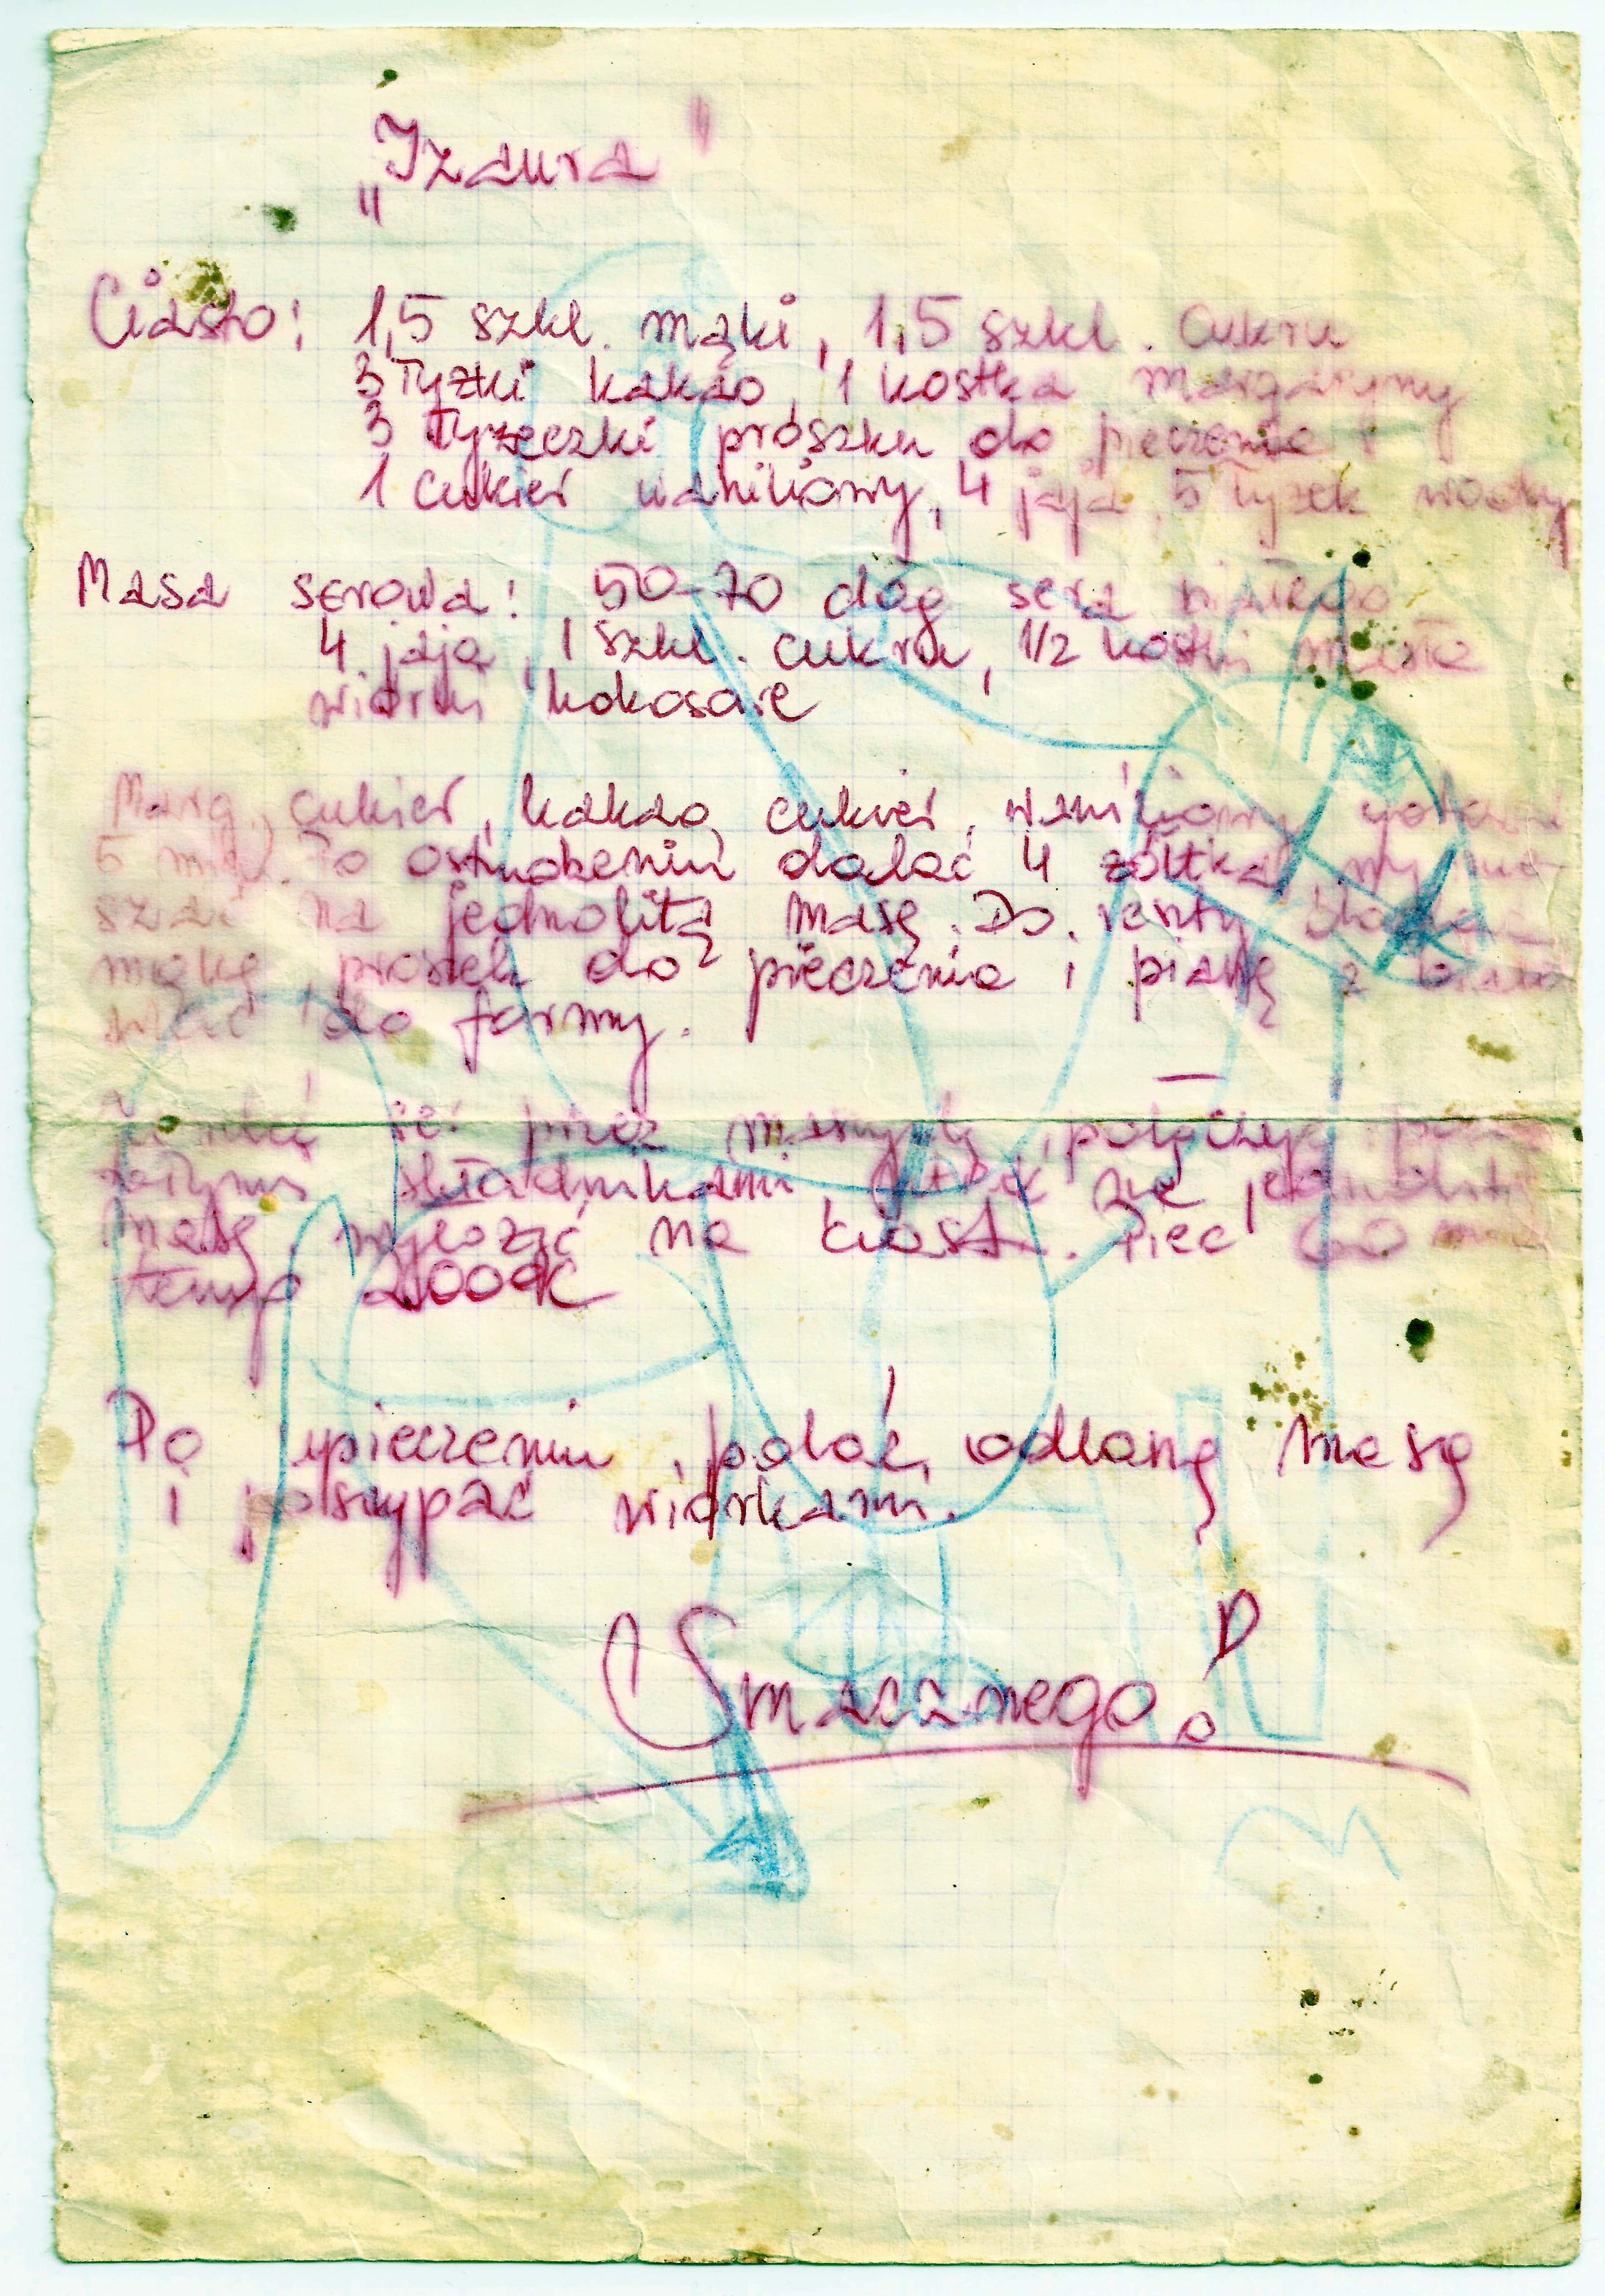 „Izaura"
Ciasto: 1,5 szkl. mąki, 1,5 szkl. cukru
3 łyżki kakao, 1 kostka margaryny
3 łyżeczki proszku do pieczenia
1 cukier waniliowy, 4 jaja, 5 łyżek wody
Masa serowa: 50-70 dag sera białego
4 jaja, 1 szkl. cukru, 1/2 kostki masła
wiórki kokosowe
Marg., cukier, kakao, cukier waniliowy gotować
5 min. Po ostudzeniu dodać 4 żółtka, wymie-
szać na jednolitą masę. Do reszty
mąkę, proszek do pieczenia i pianę z białek
wlać do formy.
przez maszynkę, połączyć
składnikami, utrzeć na jednolitą
masę, wyłożyć na ciasto. Piec 60 min
temp 200°C
Po upieczeniu, polać odlaną masą
i posypać wiórkami.
Smacznego!